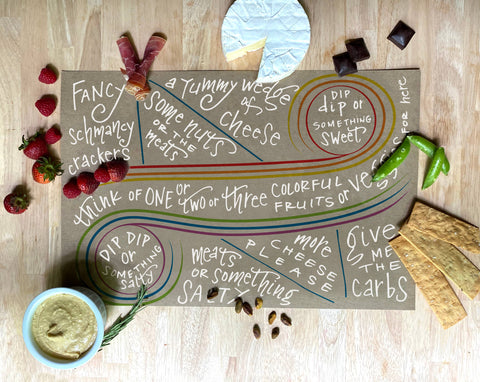 FANCY
schmancy
crackers
some nuts
OR THE
meats
a yummy wedge
of
cheese
DIP
dip or
SOMETHING
sweet
think of ONE or
two or three
COLORFUL
FRUITS or
veggies
FOR here
DIP DIP
OR
SOMETHING
salty
meats
OR something
SALTY
more
CHEESE
PLEASE
give
ME
THE
carbs